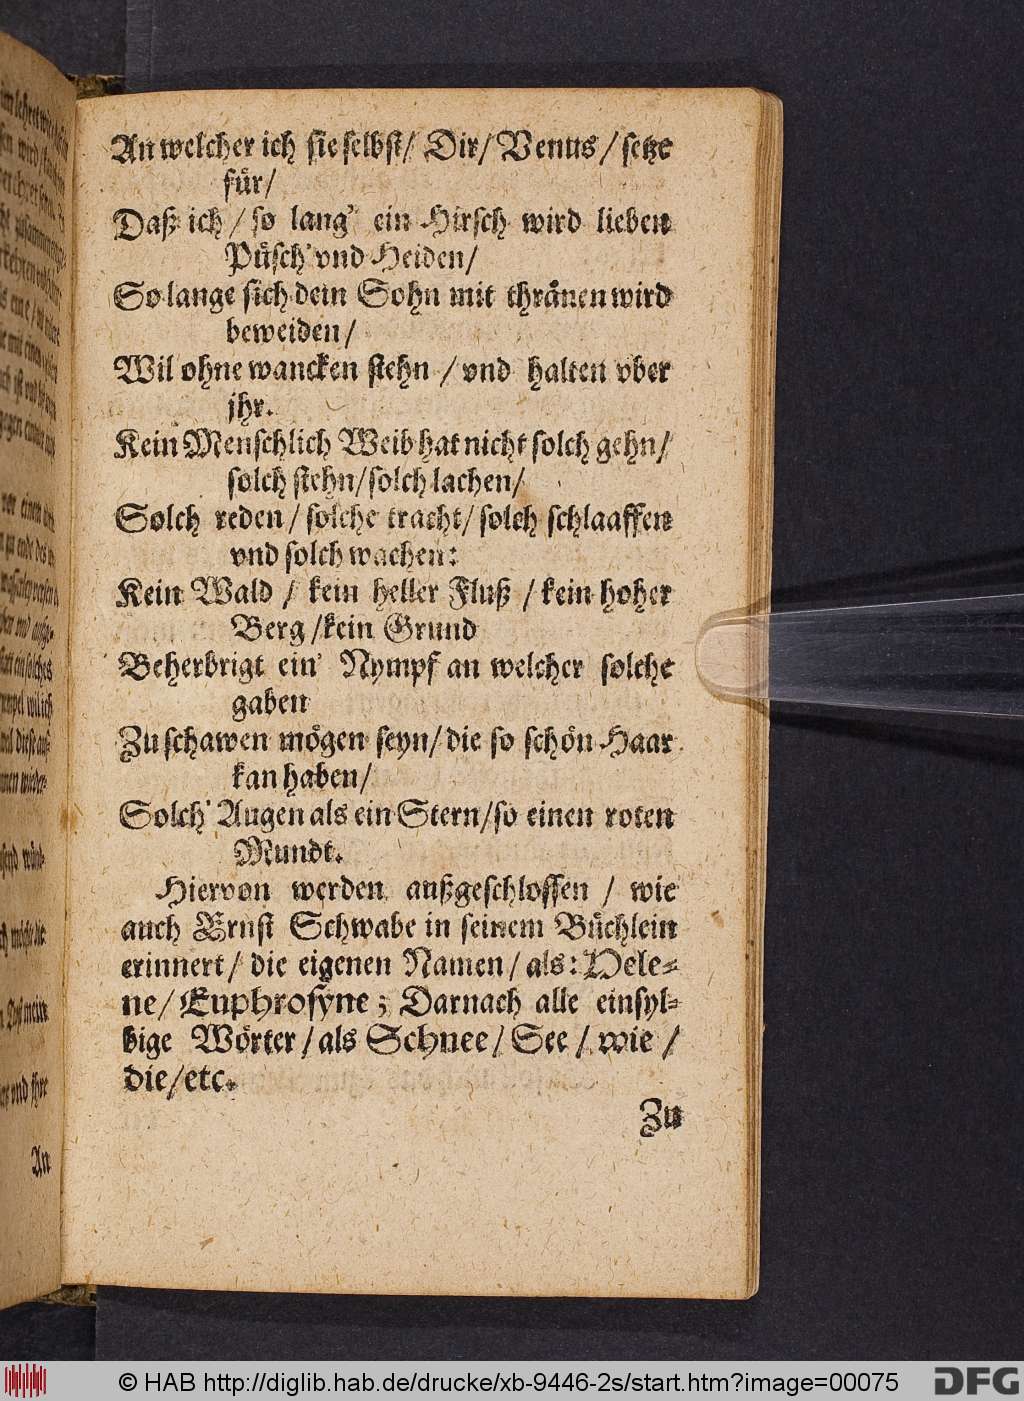 An welcher ich sie selbst/ Dir/ Venus/ setze
für/
Daß ich/ so lang' ein Hirsch wird lieben
Püsch' vnd Heiden/
So lange sich dein Sohn mit thränen wird
beweiden/
Wil ohne wancken stehn/ vnd halten vber
jhr.
Kein Menschlich Weib hat nicht solch gehn/
solch stehn/ solch lachen/
Solch reden/ solche tracht/ solch schlaaffen
vnd solch wachen:
Kein Wald/ kein heller Fluß/ kein hoher
Berg/ kein Grund
Beherbrigt ein' Nympf an welcher solche
gaben
Zu schawen mögen seyn/ die so schön Haar
kan haben/
Solch' Augen als ein Stern/ so einen roten
Mundt.
Hiervon werden außgeschlossen/ wie
auch Ernst Schwabe in seinem Büchlein
erinnert/ die eigenen Namen/ als: Hele-
ne/ Euphrosyne; Darnach alle einsyl-
bige Wörter/ als Schnee/ See/ wie/
die/ etc.
Zu
An
© HAB http://diglib.hab.de/drucke/xb-9446-2s/start.htm?image=00075
DFG